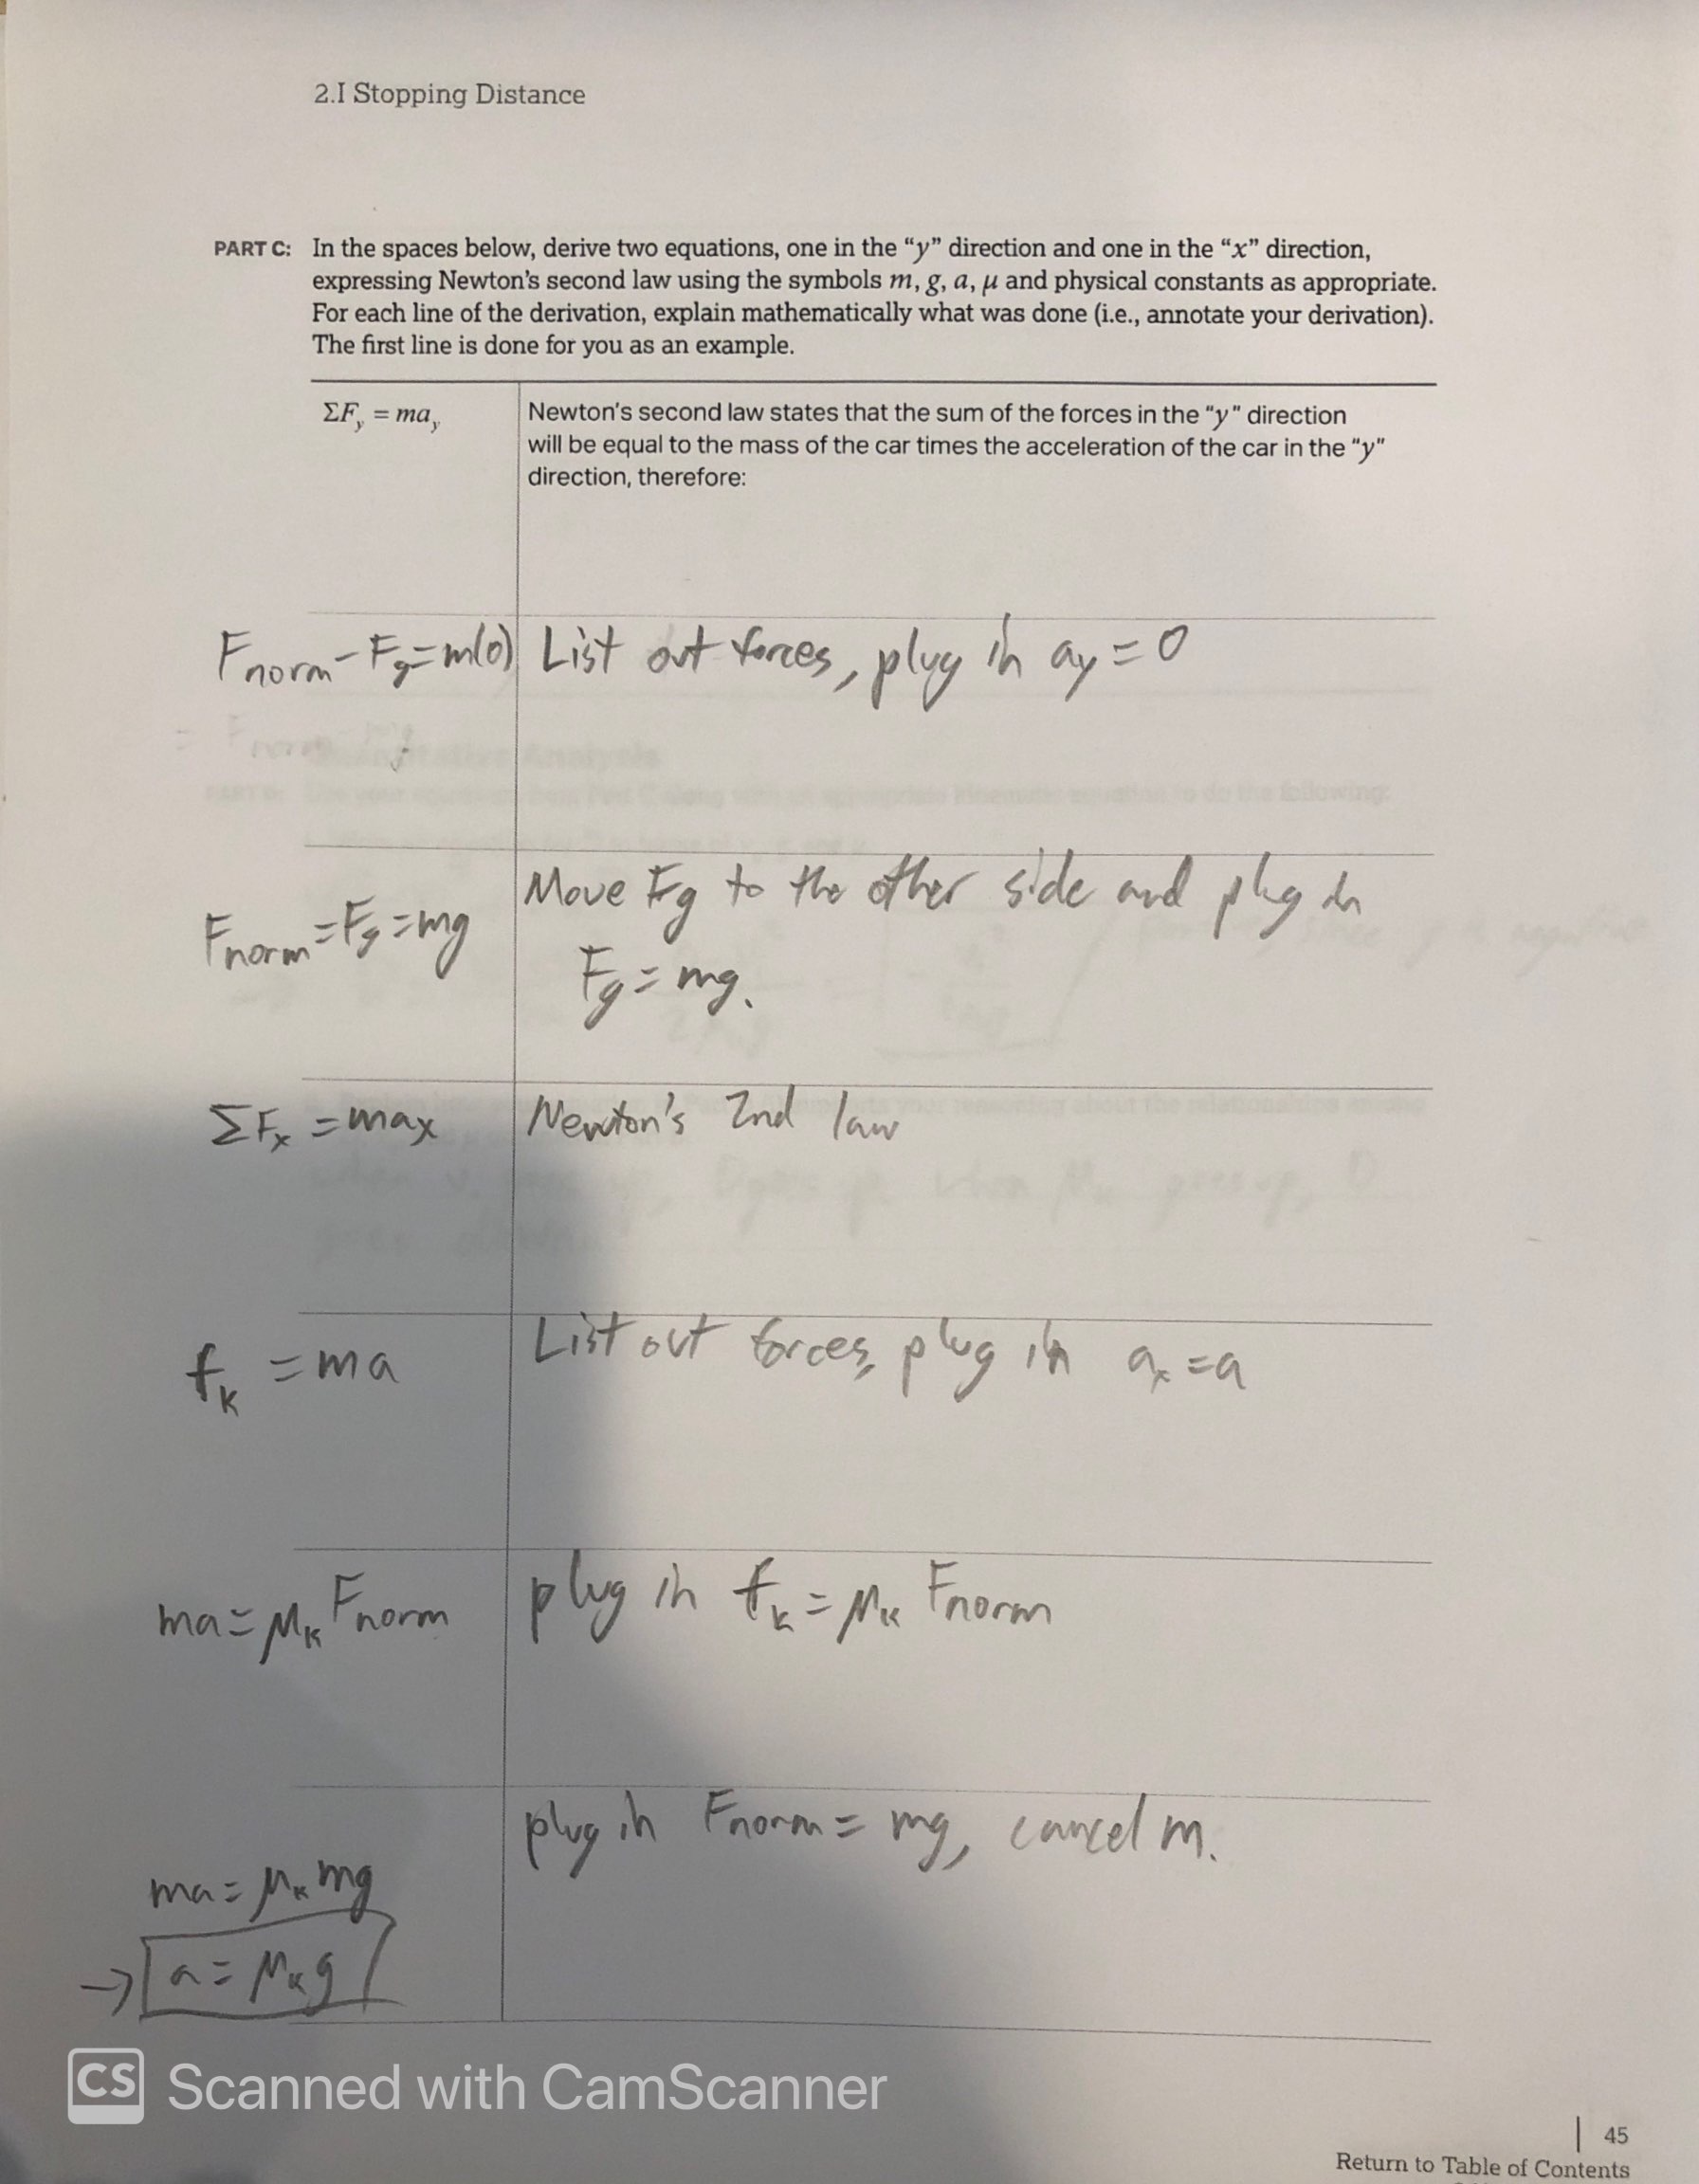 2.I Stopping Distance
PART C: In the spaces below, derive two equations, one in the “y” direction and one in the “x” direction,
expressing Newton’s second law using the symbols m, g, a, μ and physical constants as appropriate.
For each line of the derivation, explain mathematically what was done (i.e., annotate your derivation).
The first line is done for you as an example.
ΣF_y = ma_y
Newton’s second law states that the sum of the forces in the “y” direction
will be equal to the mass of the car times the acceleration of the car in the “y”
direction, therefore:
F_norm - F_g = m(0)
List out forces, plug in a_y = 0
F_norm = F_g = mg
Move F_g to the other side and plug in
F_g = mg.
ΣF_x = ma_x
Newton's 2nd law
f_k = ma
List out forces, plug in a_x = a
ma = μ_k F_norm
plug in f_k = μ_k F_norm
ma = μ_k mg
→ a = μ_k g
plug in F_norm = mg, cancel m.
CS Scanned with CamScanner
| 45
Return to Table of Contents